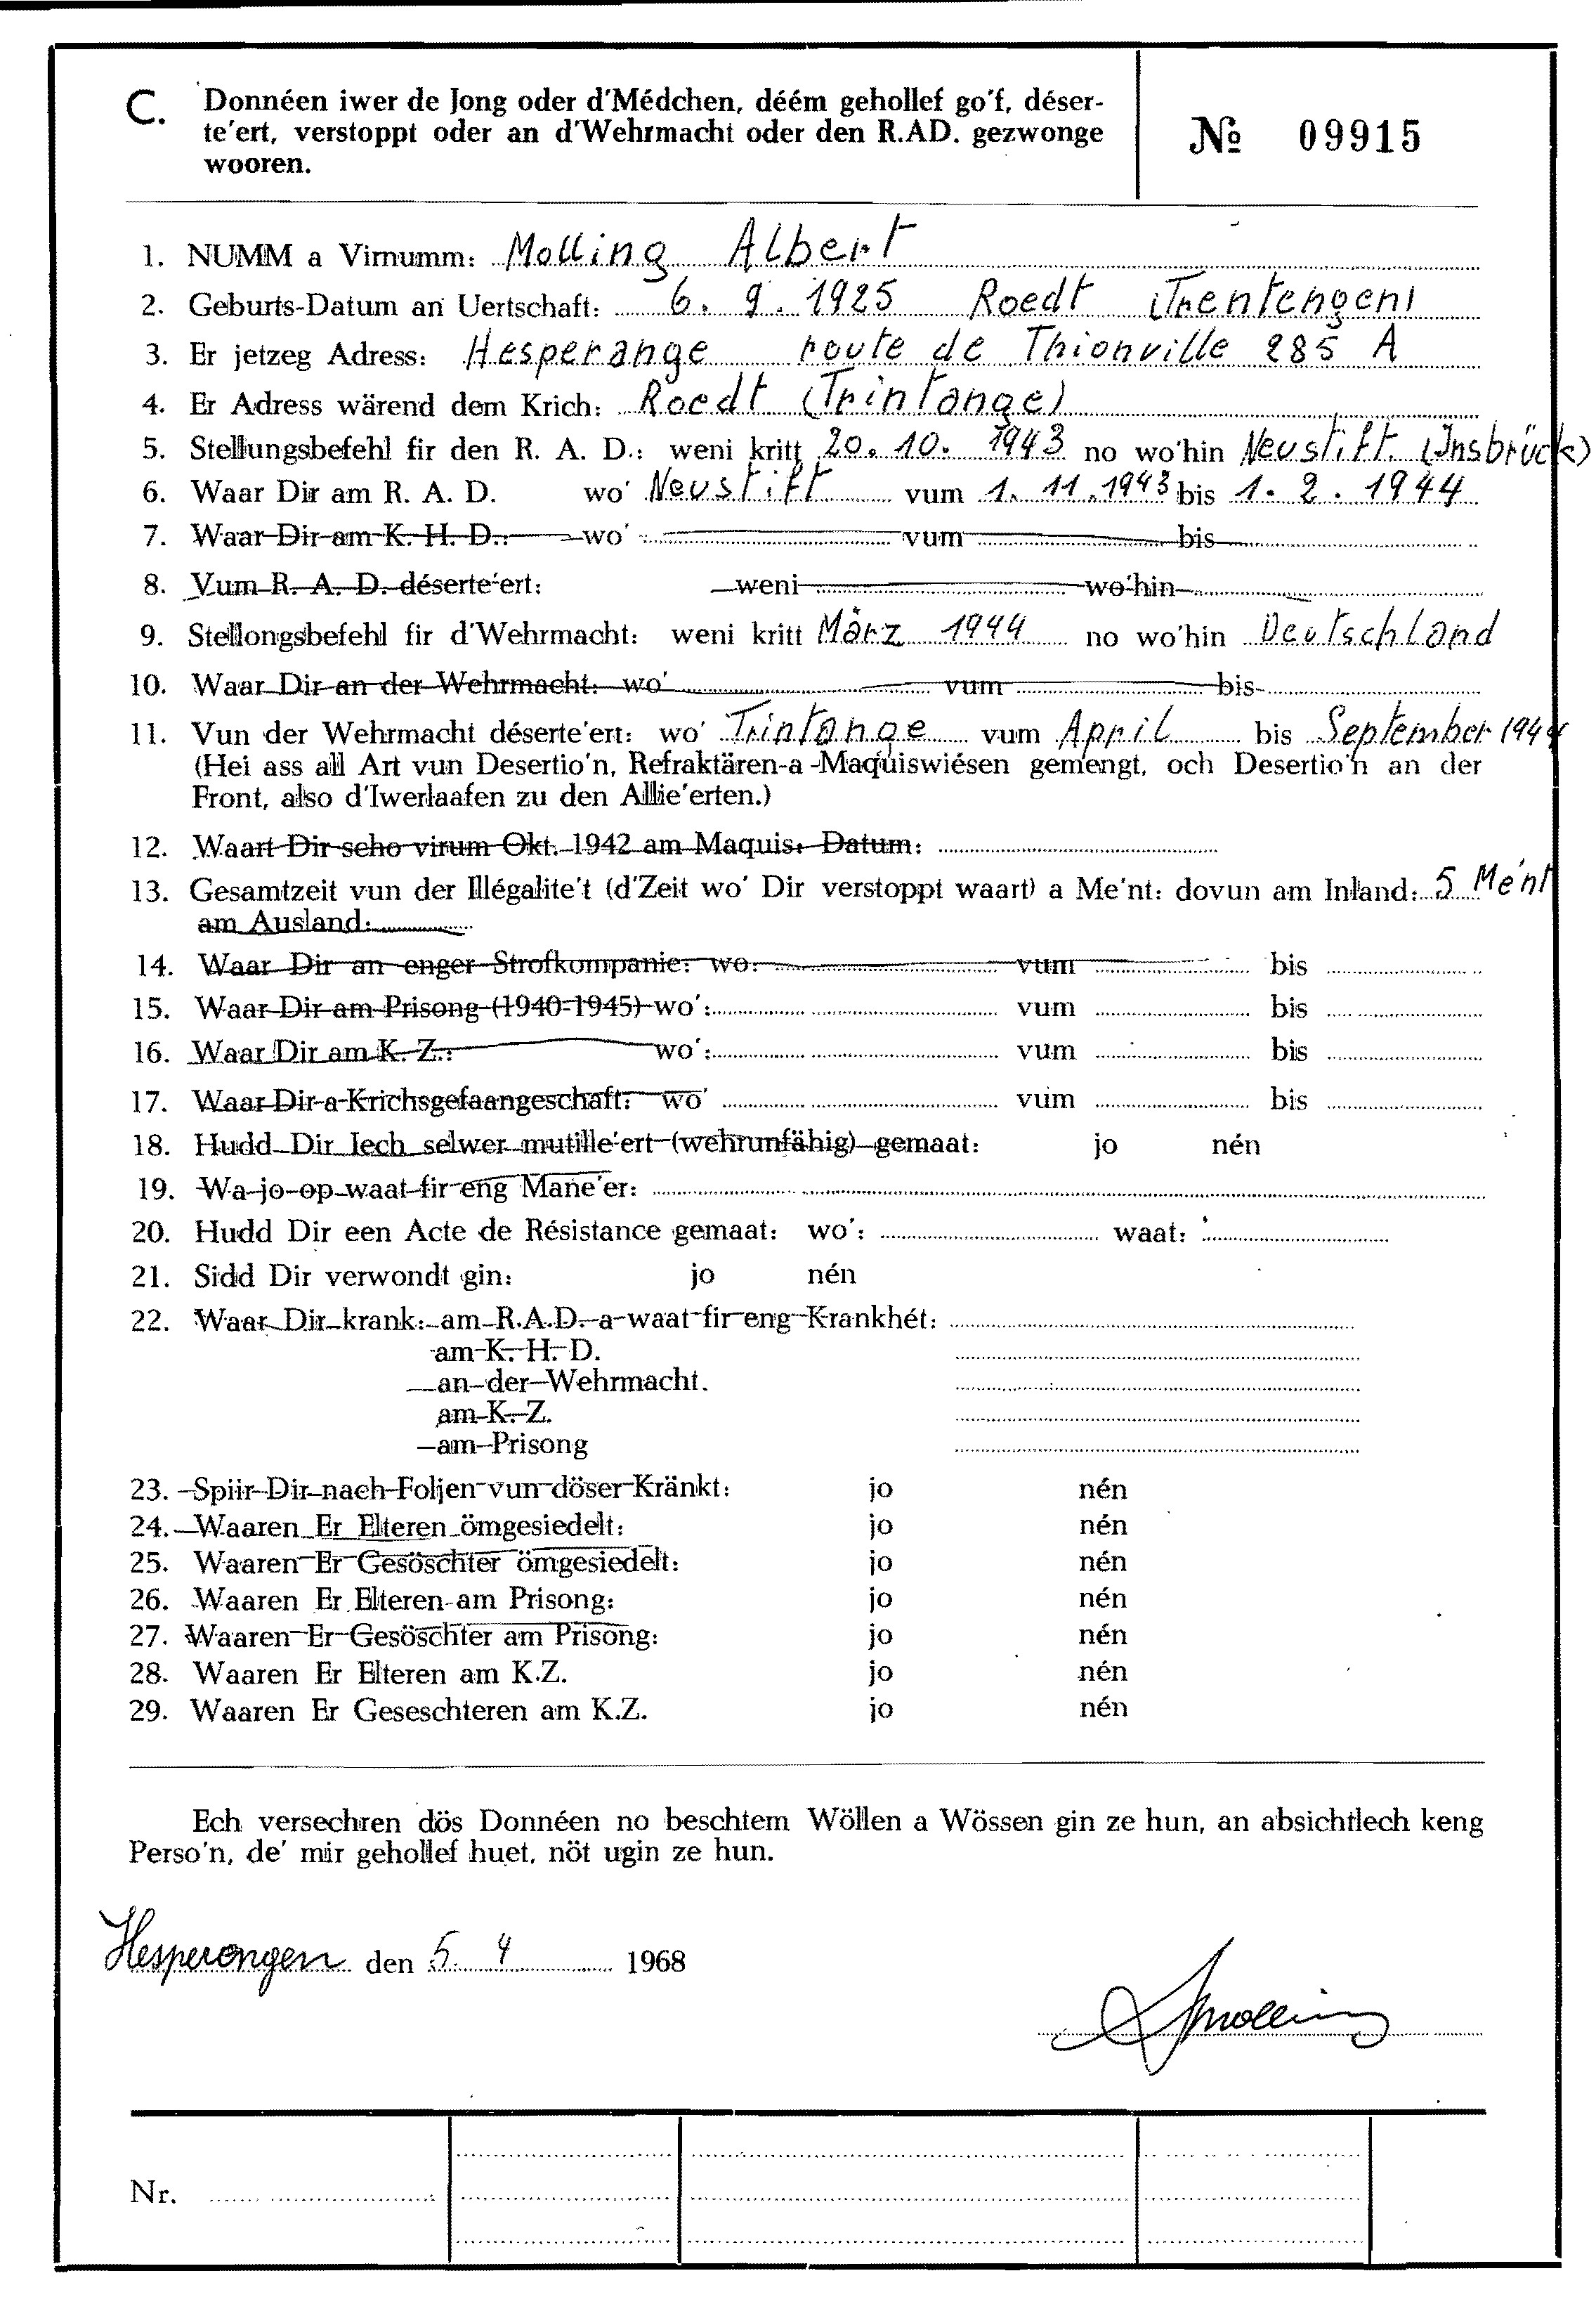 C. Donnéen iwer de Jong oder d'Médchen, déém gehollef go'f, déser-
te'ert, verstoppt oder an d'Wehrmacht oder den R.AD. gezwonge
wooren.
№ 09915
1. NUMM a Virnumm: Molling Albert
2. Geburts-Datum an Uertschaft: 6. 9. 1925 Roedt (Trentengen)
3. Er jetzeg Adress: Hesperange route de Thionville 285 A
4. Er Adress wärend dem Krich: Roedt (Trintange)
5. Stellungsbefehl fir den R. A. D.: weni kritt 20. 10. 1943 no wo'hin Neustift (Insbrück)
6. Waar Dir am R. A. D. wo' Neustift vum 1. 11. 1943 bis 1. 2. 1944
7. Waar Dir am K. H. D.: wo' vum bis
8. Vum R. A. D. déserte'ert: weni wo'hin
9. Stellongsbefehl fir d'Wehrmacht: weni kritt März 1944 no wo'hin Deutschland
10. Waar Dir an der Wehrmacht: wo' vum bis
11. Vun der Wehrmacht déserte'ert: wo' Trintange vum April bis September 1944
(Hei ass all Art vun Desertio'n, Refraktären-a-Maquiswiésen gemengt, och Desertio'n an der
Front, also d'Iwerlaafen zu den Allie'erten.)
12. Waart Dir scho virum Okt. 1942 am Maquis: Datum:
13. Gesamtzeit vun der Illégalite't (d'Zeit wo' Dir verstoppt waart) a Me'nt: dovun am Inland: 5 Me'nt
am Ausland:
14. Waar Dir an enger Strofkompanie: wo: vum bis
15. Waar Dir am Prisong (1940-1945) wo': vum bis
16. Waar Dir am K. Z.: wo': vum bis
17. Waar Dir a Krichsgefaangeschaft: wo' vum bis
18. Hudd Dir Iech selwer mutille'ert (wehrunfähig) gemaat: jo nén
19. Wa jo op waat fir eng Mane'er:
20. Hudd Dir een Acte de Résistance gemaat: wo': waat:
21. Sidd Dir verwondt gin: jo nén
22. Waar Dir krank: am R.A.D. a waat fir eng Krankhét:
am K. H. D.
an der Wehrmacht.
am K. Z.
am Prisong
23. Spiir Dir nach Foljen vun döser Kränkt: jo nén
24. Waaren Er Elteren ömgesiedelt: jo nén
25. Waaren Er Gesöschter ömgesiedelt: jo nén
26. Waaren Er Elteren am Prisong: jo nén
27. Waaren Er Gesöschter am Prisong: jo nén
28. Waaren Er Elteren am K.Z. jo nén
29. Waaren Er Geseschteren am K.Z. jo nén
Ech versechren dös Donnéen no beschtem Wöllen a Wössen gin ze hun, an absichtlech keng
Perso'n, de' mir gehollef huet, nöt ugin ze hun.
Hesperengen den 5. 4 1968
AMolling
Nr.